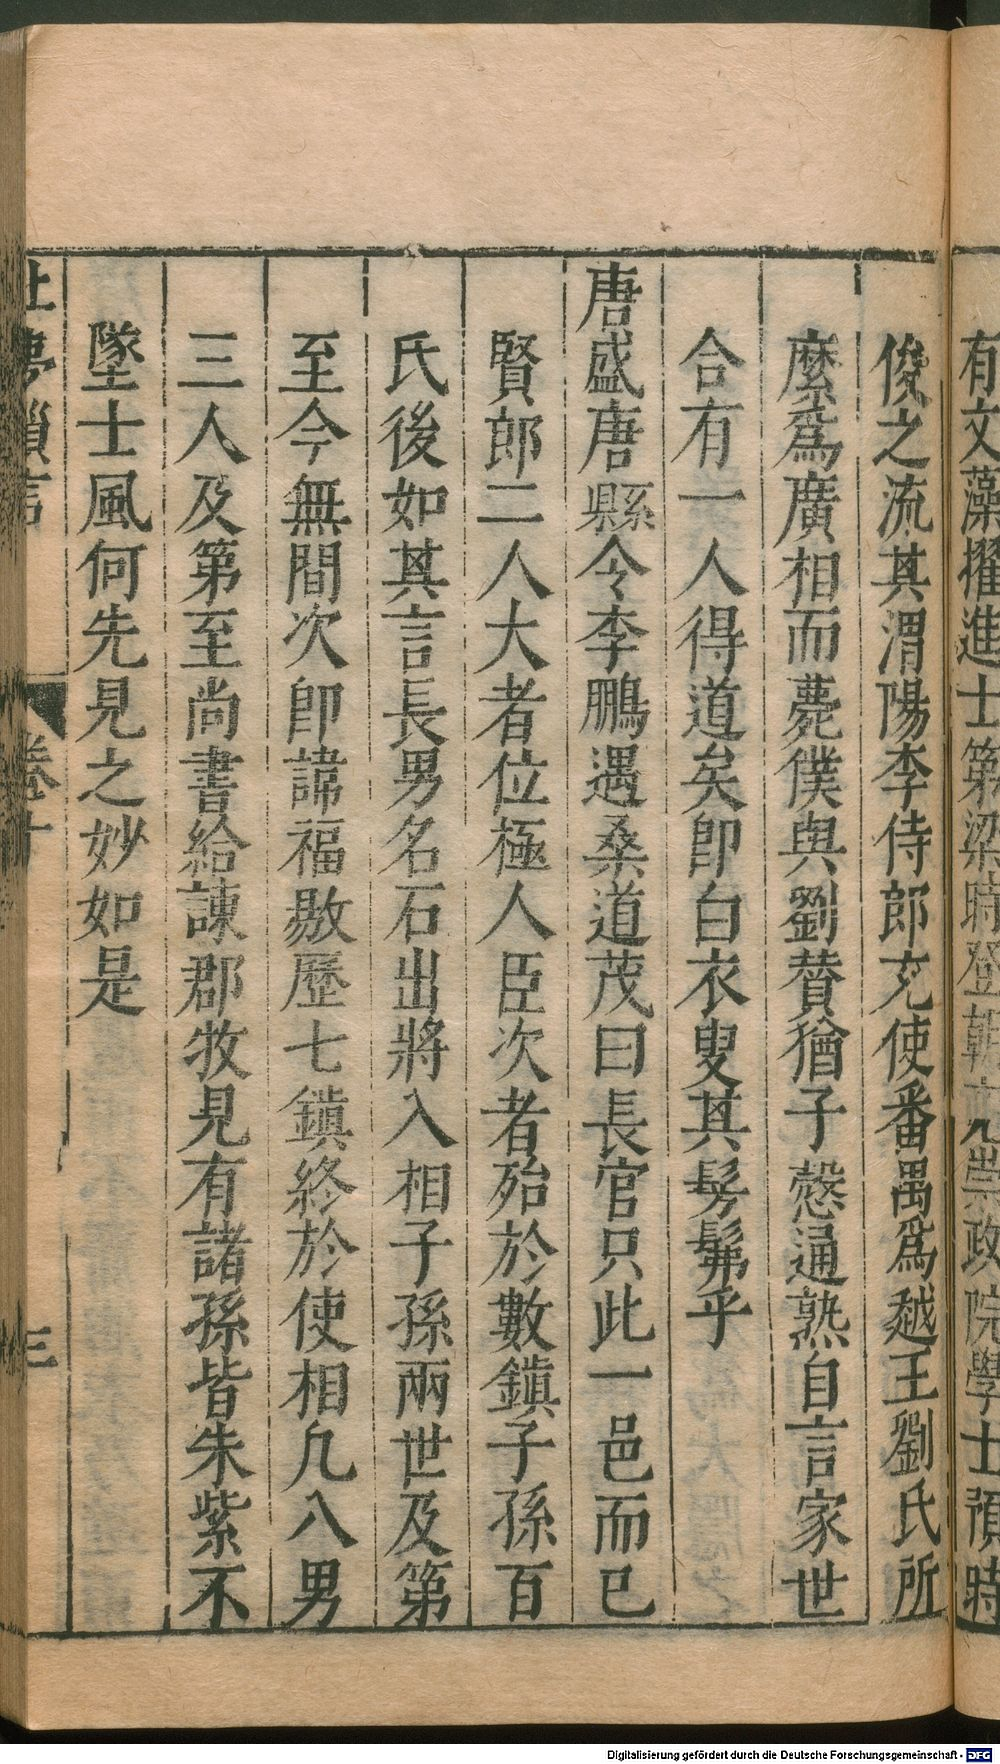 有文藻擢進士第梁時登朝充崇政院學士預時
俊之流其渭陽李侍郎充使番禺爲越王劉氏所
縻爲廣相而薨僕與劉贊猶子慤通熟自言家世
合有一人得道矣卽白衣叟其髣髴乎
唐盛唐縣令李鵬遇桑道茂曰長官只此一邑而已
賢郎二人大者位極人臣次者殆於數鎭子孫百
氏後如其言長男名石出將入相子孫兩世及第
至今無間次卽諱福敭歷七鎭終於使相凢八男
三人及第至尚書給諫郡牧見有諸孫皆朱紫不
墜士風何先見之妙如是
夢瑣言
卷十
三
Digitalisierung gefördert durch die Deutsche Forschungsgemeinschaft - DFG